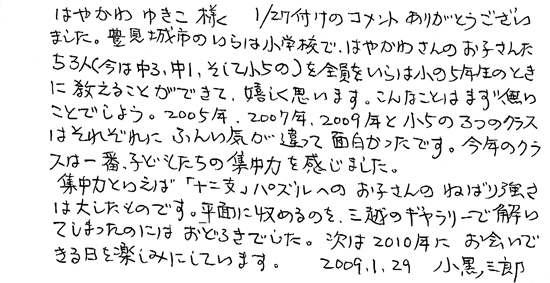 はやかわ ゆきこ 様く 1/27付けのコメント ありがとうござい
ました。豊見城市のいらは小学校で、はやかわさんのお子さんた
ち3人(今は中3、中1、そして小5の)を全員をいらは小の5年生のとき
に教えることができて、嬉しく思います。こんなことはまず無い
ことでしょう。2005年、2007年、2009年と小5の3つのクラス
はそれぞれに ふんい気が違って 面白かったです。今年のクラ
スは一番、子どもたちの集中力を感じました。
集中力といえば「十二支」パズルへの お子さんの ねばり強さ
は大したものです。平面に収めるのを、三越のギャラリーで解い
てしまったのには おどろきでした。次は2010年に お会いで
きる日を楽しみにしています。 2009.1.29 小黒三郎